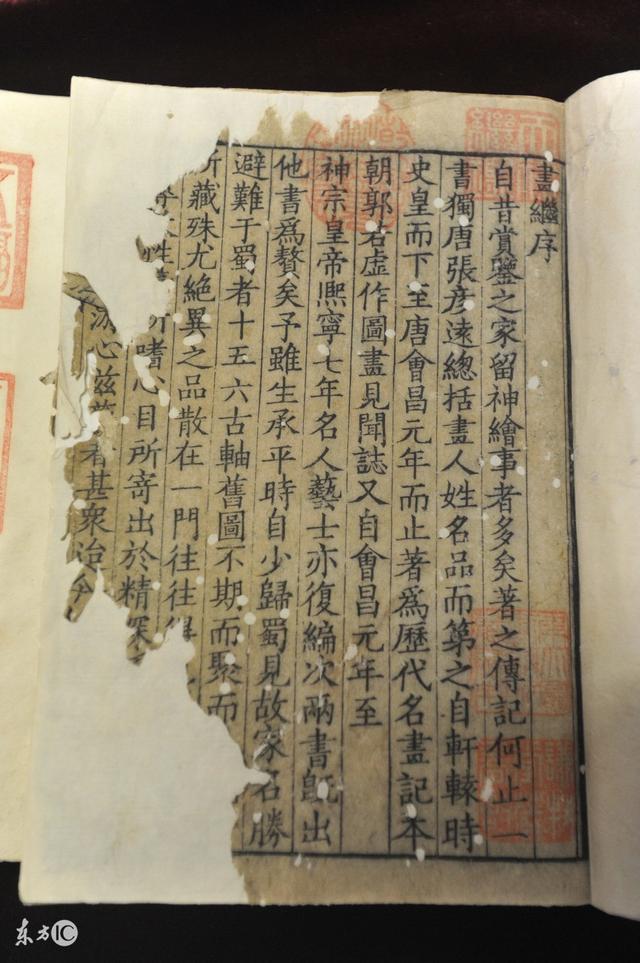 畫繼序
自昔賞鑒之家留神繪事者多矣著之傳記何止一
書獨唐張彥遠總括畫人姓名品而第之自軒轅時
史皇而下至唐會昌元年而止著爲歷代名畫記本
朝郭若虛作圖畫見聞誌又自會昌元年至
神宗皇帝熈寧七年名人藝士亦復編次兩書旣出
他書爲贅矣予雖生承平時自少歸蜀見故家名勝
避難于蜀者十五六古軸舊圖不期而聚而
所藏殊尤絕異之品散在一門往往得
性所嗜心目所寄出於精深
游心茲藝者甚衆迨今
东方IC